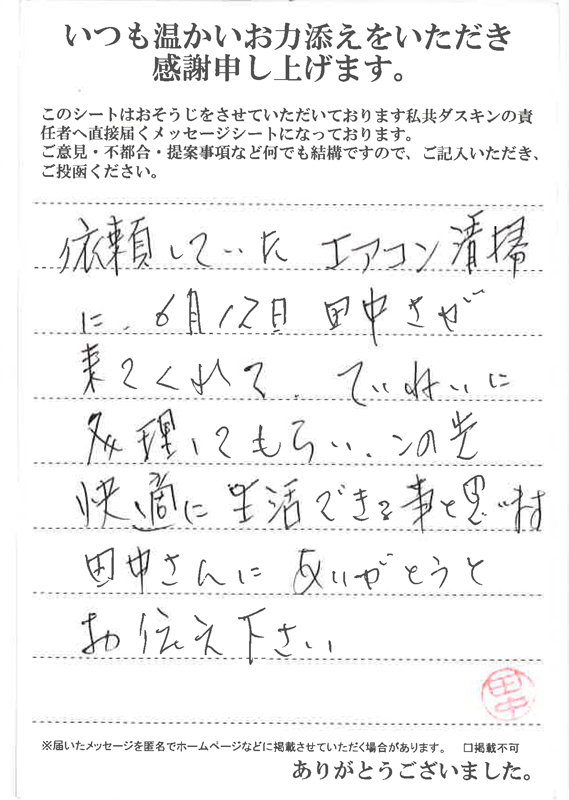 いつも温かいお力添えをいただき
感謝申し上げます。
このシートはおそうじをさせていただいております私共ダスキンの責
任者へ直接届くメッセージシートになっております。
ご意見・不都合・提案事項など何でも結構ですので、ご記入いただき、
ご投函ください。
依頼していた エアコン清掃
に、6月12日 田中さが
来てくれて、ていねいに
理してもらい、この先
快適に生活できる事と思います
田中さんに ありがとうと
お伝え下さい
田中
※届いたメッセージを匿名でホームページなどに掲載させていただく場合があります。 □掲載不可
ありがとうございました。